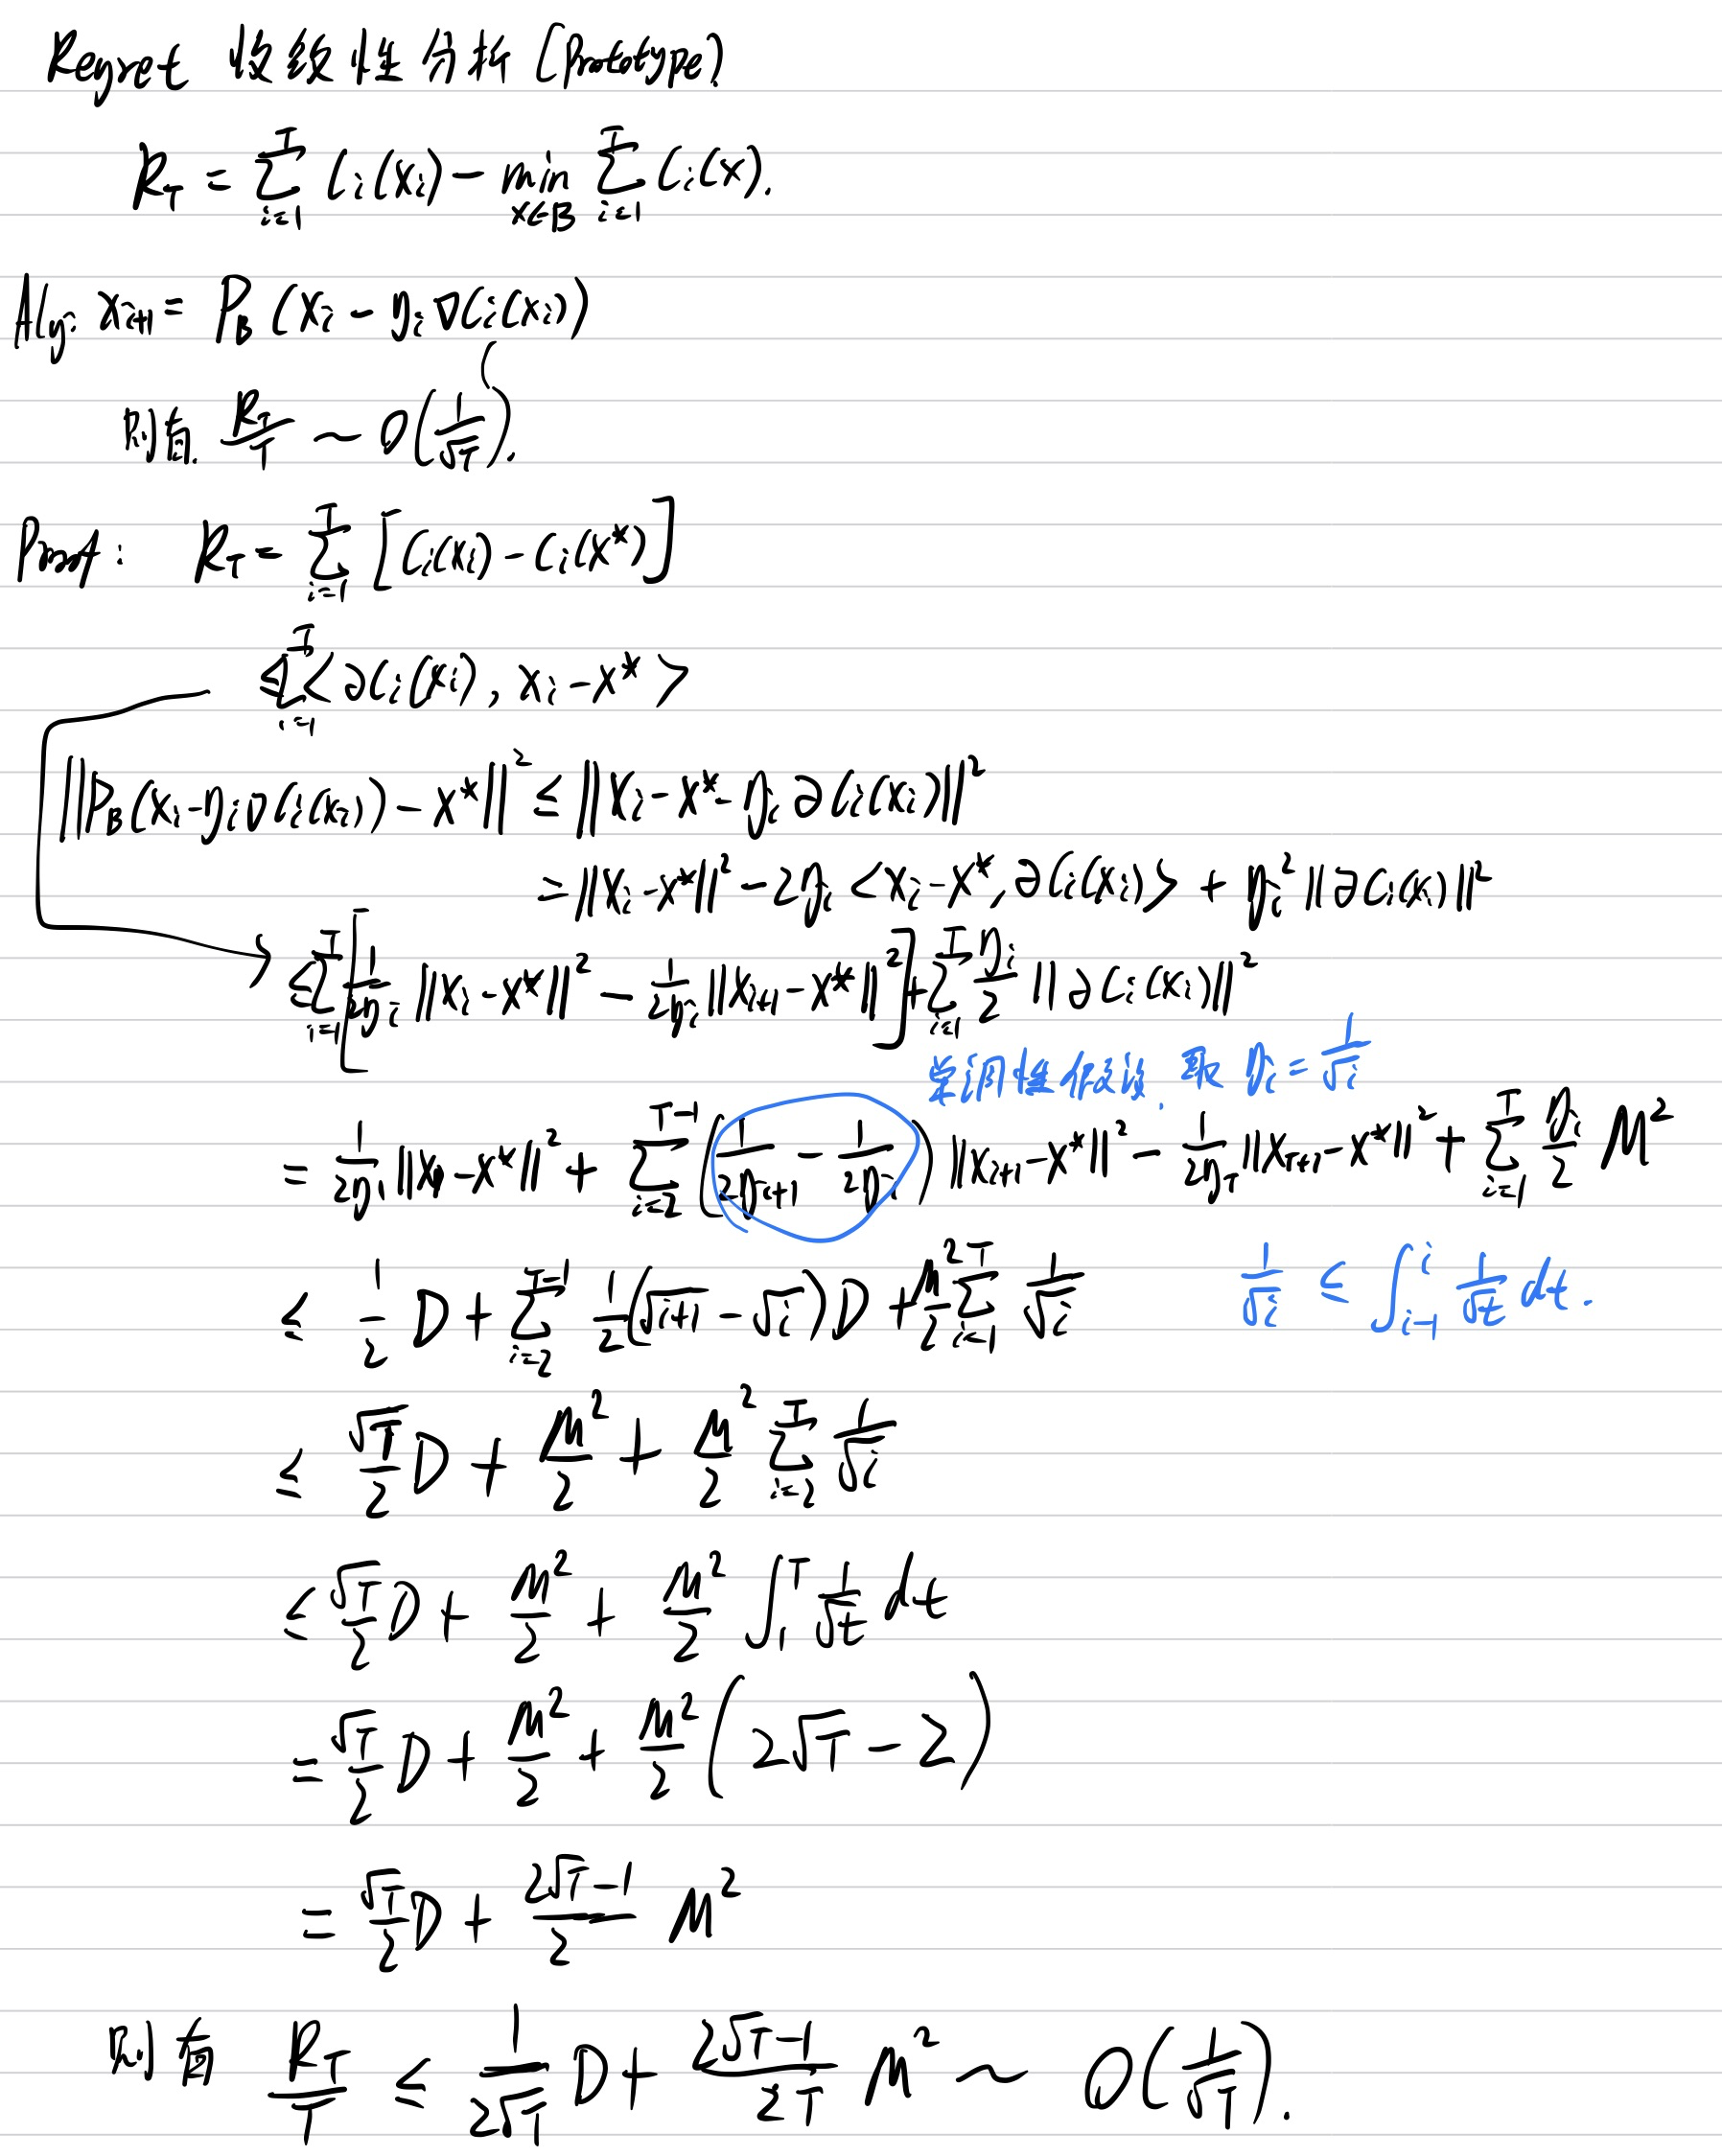 Regret 收敛性分析 (Prototype)
R_T = ∑_{i=1}^{T} C_i(x_i) - min_{x∈B} ∑_{i=1}^{T} C_i(x).
Alg: x_{i+1} = P_B (x_i - η_i ∇C_i(x_i))
则有. R_T/T ~ O(1/√T).
Proof: R_T = ∑_{i=1}^{T} [C_i(x_i) - C_i(x*)]
≤ ∑_{i=1}^{T} < ∂C_i(x_i), x_i - x* >
||P_B(x_i - η_i ∇C_i(x_i)) - x*||² ≤ ||x_i - x* - η_i ∂C_i(x_i)||²
= ||x_i - x*||² - 2η_i <x_i - x*, ∂C_i(x_i)> + η_i² ||∂C_i(x_i)||²
≤ ∑_{i=1}^{T} [1/(2η_i) ||x_i - x*||² - 1/(2η_i) ||x_{i+1} - x*||²] + ∑_{i=1}^{T} η_i/2 ||∂C_i(x_i)||²
单调性假设. 取 η_i = 1/√i
= 1/(2η_1) ||x_1 - x*||² + ∑_{i=2}^{T-1} (1/(2η_{i+1}) - 1/(2η_i)) ||x_{i+1} - x*||² - 1/(2η_T) ||x_{T+1} - x*||² + ∑_{i=1}^{T} η_i/2 M²
≤ 1/2 D + ∑_{i=2}^{T-1} 1/2 (√(i+1) - √i) D + M²/2 ∑_{i=1}^{T} 1/√i 1/√i ≤ ∫_{i-1}^{i} 1/√t dt.
≤ √T/2 D + M²/2 + M²/2 ∑_{i=2}^{T} 1/√i
≤ √T/2 D + M²/2 + M²/2 ∫_1^T 1/√t dt
= √T/2 D + M²/2 + M²/2 (2√T - 2)
= √T/2 D + (2√T-1)/2 M²
则有 R_T/T ≤ 1/(2√T) D + (2√T-1)/(2T) M² ~ O(1/√T).